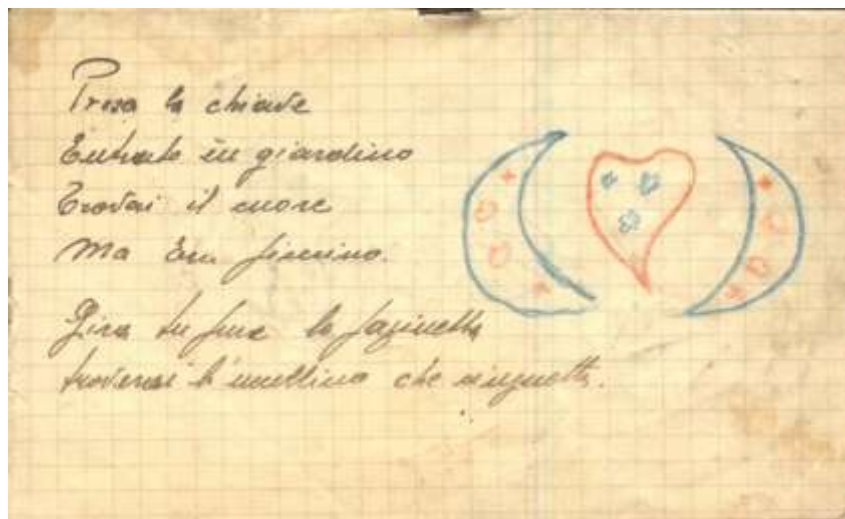 Presa la chiave
Entrato in giardino
Trovai il cuore
Ma
Gira tu pure la paginetta
troverai l'uccellino che